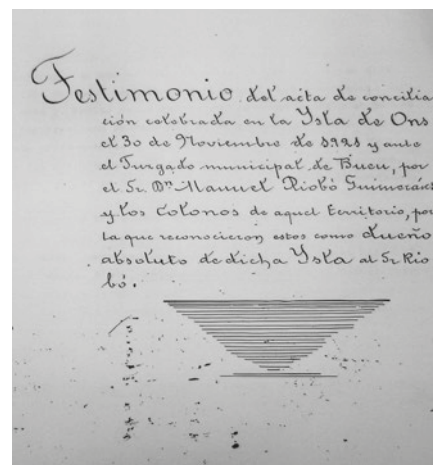 Testimonio del acta de concilia
ción celebrada en la Ysla de Ons
el 30 de Noviembre de 1921 y ante
el Jurgado municipal de Bueu, por
el Sr. Dn. Manuel Riobó Guimeráns
y los Colonos de aquel territorio, por
la que reconocieron estos como dueño
absoluto de dicha Ysla al Sr Rio
bó.